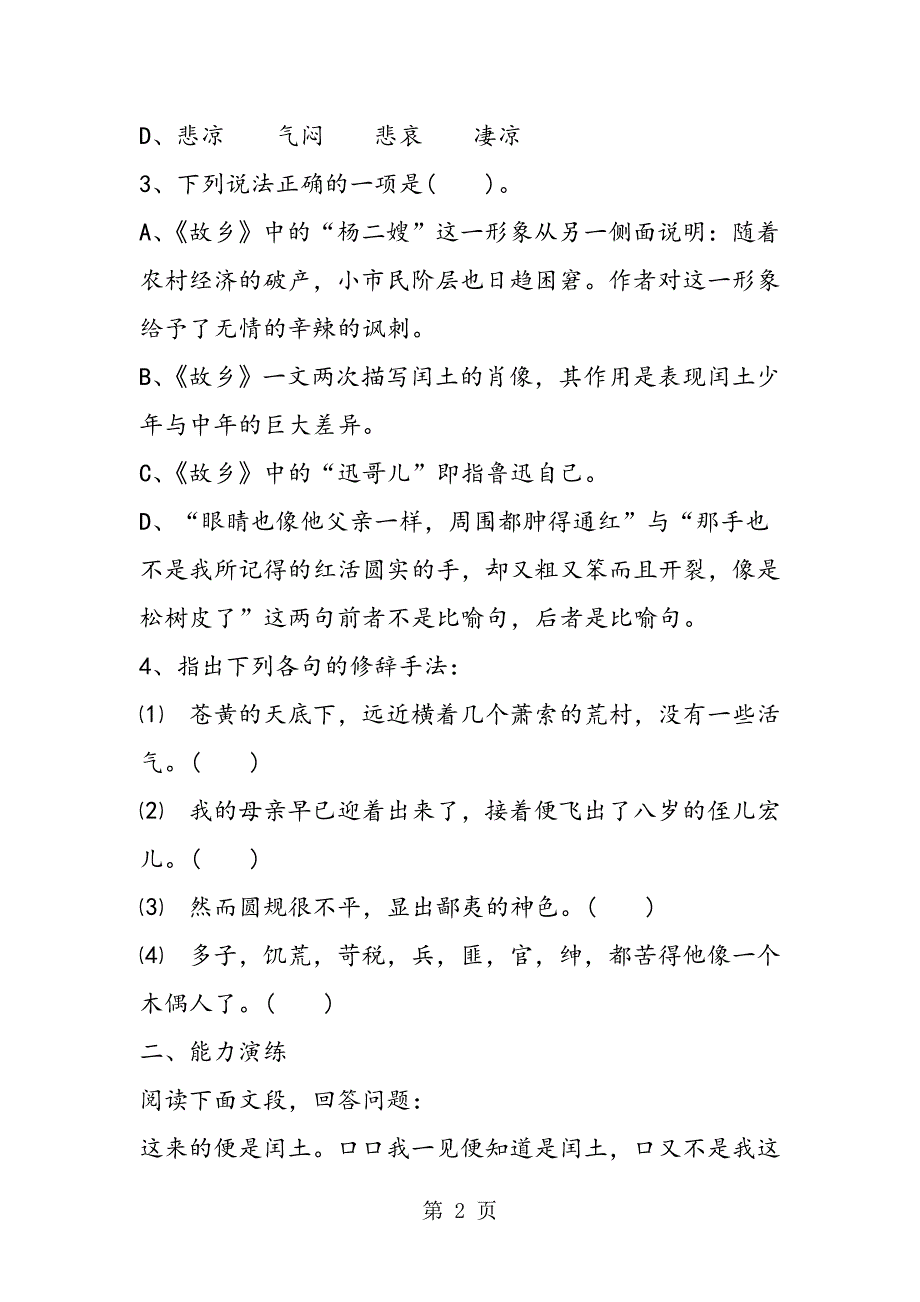 D、悲凉　　气闷　　悲哀　　凄凉
3、下列说法正确的一项是(　　)。
A、《故乡》中的“杨二嫂”这一形象从另一侧面说明：随着
农村经济的破产，小市民阶层也日趋困窘。作者对这一形象
给予了无情的辛辣的讽刺。
B、《故乡》一文两次描写闰土的肖像，其作用是表现闰土少
年与中年的巨大差异。
C、《故乡》中的“迅哥儿”即指鲁迅自己。
D、“眼睛也像他父亲一样，周围都肿得通红”与“那手也
不是我所记得的红活圆实的手，却又粗又笨而且开裂，像是
松树皮了”这两句前者不是比喻句，后者是比喻句。
4、指出下列各句的修辞手法：
⑴　苍黄的天底下，远近横着几个萧索的荒村，没有一些活
气。(　　)
⑵　我的母亲早已迎着出来了，接着便飞出了八岁的侄儿宏
儿。(　　)
⑶　然而圆规很不平，显出鄙夷的神色。(　　)
⑷　多子，饥荒，苛税，兵，匪，官，绅，都苦得他像一个
木偶人了。(　　)
二、能力演练
阅读下面文段，回答问题：
这来的便是闰土。口口我一见便知道是闰土，口又不是我这
第 2 页